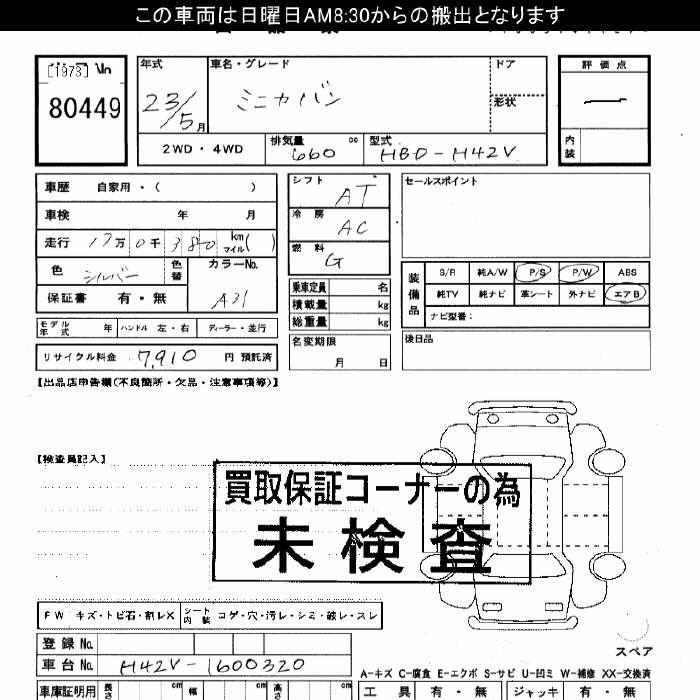 この車両は日曜日AM8:30からの搬出となります
80449
年式
23/5月
車名・グレード
ミニカバン
ドア
形状
評価点
内装
2WD・4WD
排気量 660 cc
型式 HBD-H42V
車歴 自家用・( )
車検 年 月
走行 17万0千380 km マイル( )
色 シルバー
色替
カラーNo. A31
保証書 有・無
シフト AT
冷房 AC
燃料 G
乗車定員 名
積載量 kg
総重量 kg
名変期限 月 日
セールスポイント
装備品
S/R 純A/W P/S P/W ABS
純TV 純ナビ 革シート 外ナビ エアB
ナビ型番:
後日品
モデル年式 年 ハンドル 左・右 ディーラー・並行
リサイクル料金 7,910 円 預託済
【出品店申告欄(不良箇所・欠品・注意事項等)】
【検査員記入】
買取保証コーナーの為
未検査
FW キズ・トビ石・割レX
シート内装 コゲ・穴・汚レ・シミ・破レ・スレ
登録No.
車台No. H42V-1600320
スペア
A-キズ C-腐食 E-エクボ S-サビ U-凹ミ W-補修 XX-交換済
車庫証明用 長さ cm 幅 cm 高さ cm
工具 有・無 ジャッキ 有・無